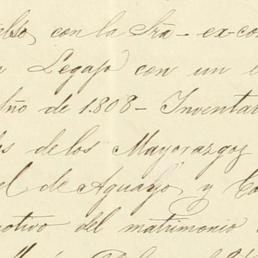 con la Sra - ex-con
Legajo con un
Año de 1808 - Inventar
de los Mayorazgos
el de Aguayo y Co
motivo del matrimonio